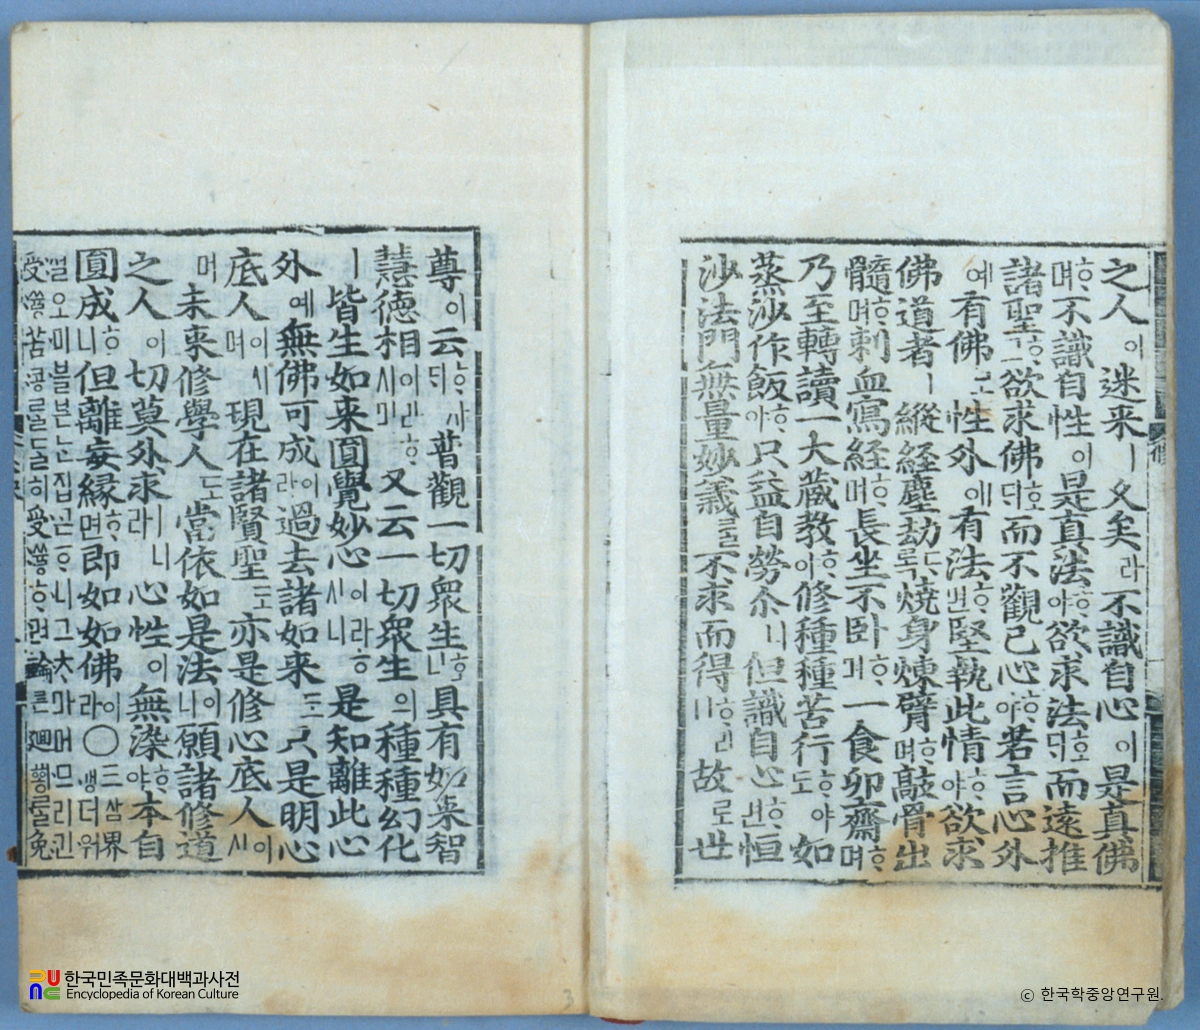 之人이迷来ㅣ久矣라不識自心이是真佛
ᄒᆞ며不識自性이是真法ᄒᆞ야欲求法호ᄃᆡ而遠推
諸聖ᄒᆞ고欲求佛호ᄃᆡ而不觀己心ᄒᆞ야若言心外
예有佛고性外예有法ᄒᆞ야堅執此情ᄒᆞ야欲求
佛道者ㅣ縱經塵劫ᄃᆞ록燒身煉臂ᄒᆞ며敲骨出
髓ᄒᆞ며刺血寫經ᄒᆞ며長坐不卧ᄒᆞ며一食卯齋ᄒᆞ며
乃至轉讀一大藏教ᄒᆞ야修種種苦行ᄒᆞ야도如
蒸沙作飯ᄒᆞ야只益自勞尒니但識自心ᄒᆞ면恒
沙法門無量妙義ᄅᆞᆯ不求而得ᄒᆞ리니故로世
尊이云ᄒᆞ샤ᄃᆡ普觀一切衆生혼ᄃᆡ具有如来智
慧德相이라ᄒᆞ시며又云一切衆生의種種幻化
ㅣ皆生如来圓覺妙心이라ᄒᆞ시니是知離此心
外예無佛可成이라過去諸如来도只是明心
底人이시며現在諸賢聖도亦是修心底人이시
며未来修學人도當依如是法이니願諸修道
之人이切莫外求ㅣ니라心性이無染ᄒᆞ야本自
圓成ᄒᆞ니但離妄緣ᄒᆞ면即如如佛이라○三삼界갱더워
설오미블븓ᄂᆞᆫ집ᄀᆞᆮᄒᆞ니그 머므러긴
受쓩苦콩ᄅᆞᆯ 히受쓩ᄒᆞ련 輪륜廻ᅘᅬᆼᄅᆞᆯ免
한국민족문화대백과사전
Encyclopedia of Korean Culture
ⓒ 한국학중앙연구원.